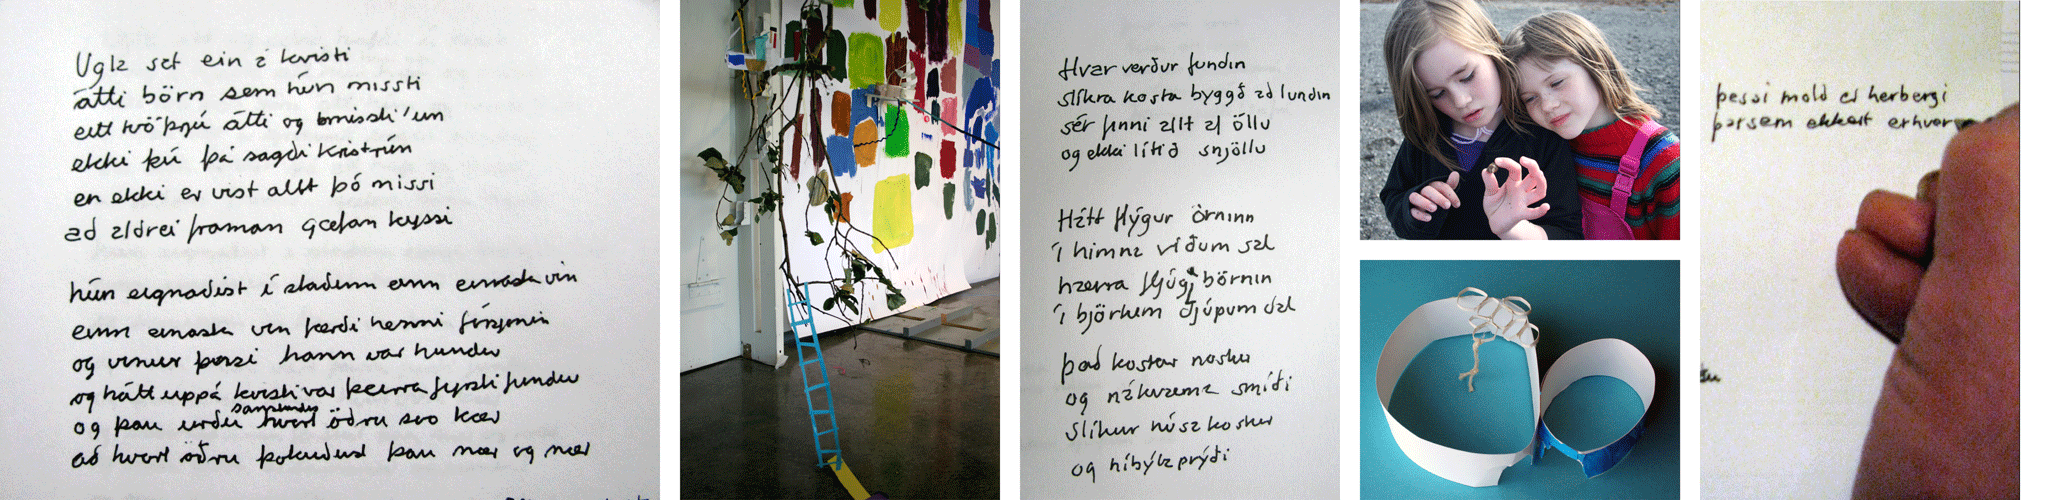 Ugla sat ein á kvisti
átti börn sem hún missti
eitt tvö þrjú átti og missti'un
ekki þú þá sagði Kristrún
en ekki er víst allt þó missi
að aldrei framan gæfan kyssi
hún eignaðist í staðinn einn einasta vin
einn einasta vin færði henni forsjónin
og vinur þessi hann var hundur
og hátt uppá kvisti var þeirra fyrsti fundur
samstundis
og þau urðu öðru svo kær
að hvort öðru þokuðust þau nær og nær
Hvar verður fundin
slíkra kosta byggð að lundin
sér finni allt af öllu
og ekki lítið snjöllu
Hátt flýgur örninn
í himna víðum sal
hærra fljúga börnin
í björtum djúpum dal
það kostar naskur
og nákvæma smíði
slíkur húsakostur
og híbýlaprýði
þessi mold er herbergi
þarsem ekkert er